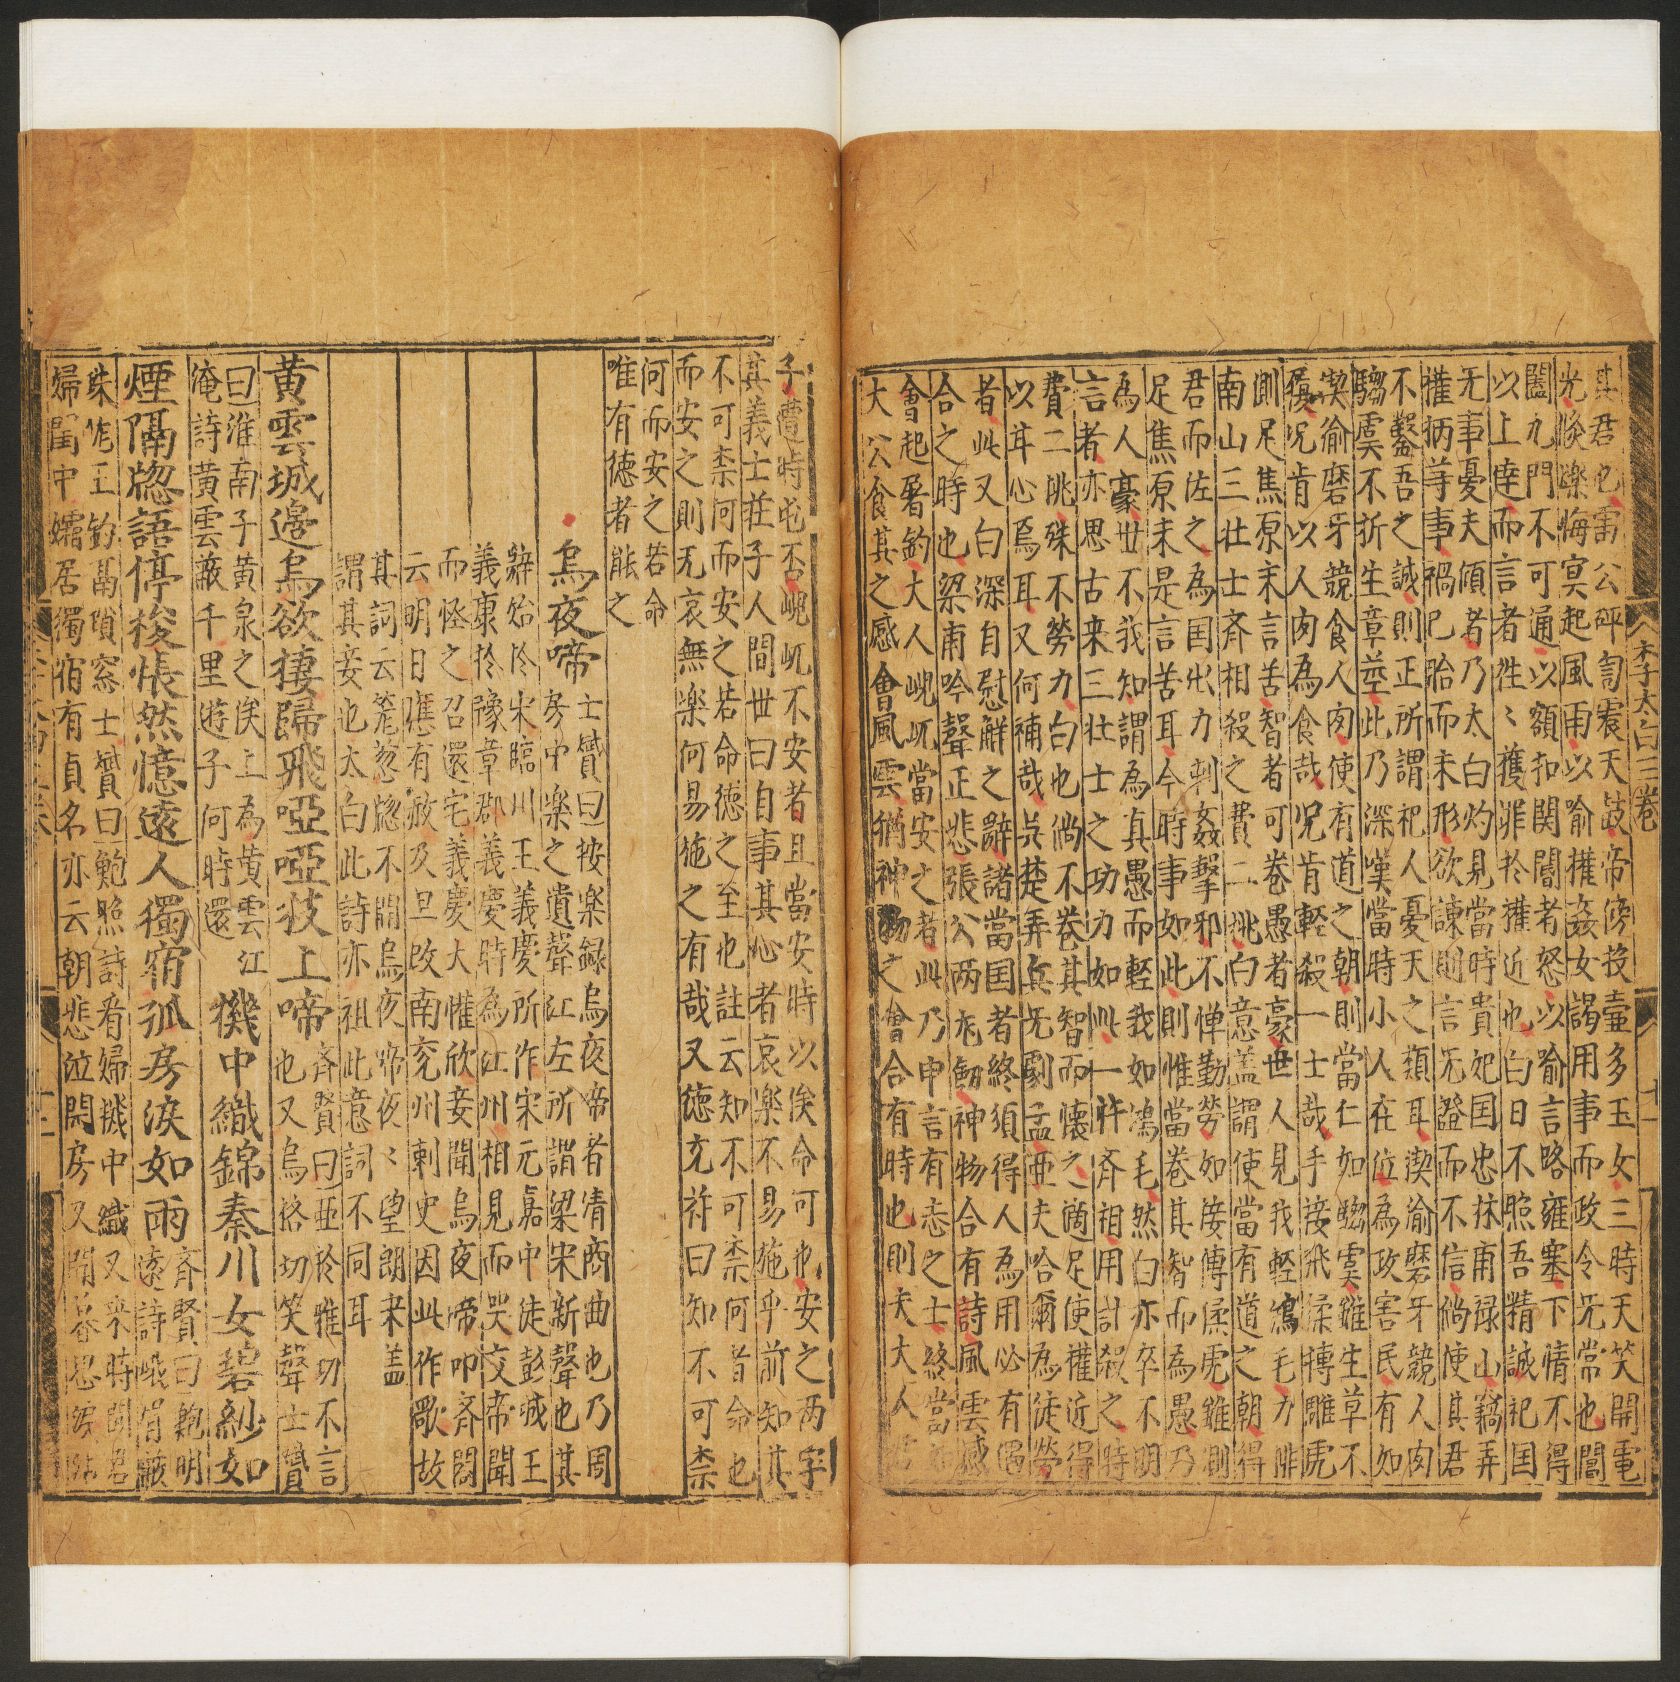 其君也雷公砰訇震天鼓帝傍投壺多玉女三時天笑開電
光倏爍晦冥起風雨以喻權姦女謁用事而政令无常也閶
闔九門不可通以額扣関閽者怒以喻言路雍塞下情不得
以上達而言者徃〻獲罪扵權近也白日不照吾精誠祀囯
无事憂天傾者乃太白灼見當時貴妃囯忠林甫祿山竊弄
權柄等事禍已胎而未形欲諫則言无證而不信倘使其君
不鑒吾之誠則正所謂祀人憂天之類耳猰㺄磨牙競人肉
騶虞不折生草莖此乃深嘆當時小人在位為政害民有如
猰㺄磨牙競食人肉使有道之朝則當仁如騶虞雖生草不
履况肯以人肉為食哉况肯輕殺一士哉手接飛猱搏雕虎
側足焦原未言苦智者可卷愚者豪世人見我輕鴻毛力排
南山三壯士齊相殺之費二桃白意盖謂使當有道之朝得
君而佐之為囯出力刺姦擊邪不憚勤勞如接傅猱虎雖側
足焦原未是言苦耳今時事如此則惟當卷其智而為愚乃
為人豪世不我知謂為真愚而輕我如鴻毛然白亦卒不明
言者亦思古来三壯士之功力如此一旿齊相用計殺之特
費二桃殊不勞力白也倘不卷其智而懷之適足使權近得
以甘心焉耳又何補哉吳楚弄兵无劇孟亜夫咍爾為徒勞
者此又白深自慰觧之辭諸當囯者終須得人為用必有遇
合之時也梁甫吟聲正悲張公兩龙劒神物合有詩風雲感
會起屠釣大人𡸣屼當安之者此乃申言有志之士終當如
大公食其之感會風雲猶神物之會合有時也則夫大人君
李太白三卷
十一
子遭時屯否𡸣屼不安者且當安時以俟命可也安之两字
其義士莊子人間世曰自事其心者哀樂不易施乎前知其
不可柰何而安之若命德之至也註云知不可柰何者命也
而安之則无哀無樂何易施之有哉又徳充符曰知不可柰
何而安之若命
唯有徳者能之
烏夜啼
士贇曰按樂録烏夜啼者清商曲也乃周
房中樂之遺聲江左所謂梁宋新聲也其
辭始扵宋臨川王義慶所作宋元嘉中徒彭城王
義康扵豫章郡義慶時為江州相見而哭文帝聞
而怪之召還宅義慶大懼欣妾聞烏夜啼叩齊閤
云明日應有赦及旦改南兖州刺史因此作歌故
其詞云籠葱牕不開烏夜啼夜〻望朗来盖
謂其妾也太白此詩亦祖此意詞不同耳
黄雲城邊烏欲棲歸飛啞啞枝上啼
齊賢曰亜扵雅切不言
也又烏格切笑聲士贇
曰淮南子黄泉之埃上為黄雲江
淹詩黄雲蔽千里遊子何時還
機中織錦秦川女碧紗如
煙隔牕語停梭悵然憶遠人獨宿孤房淚如雨
齊賢曰鮑明
遠詩蛾眉蔽
珠𥴩玉鈎鬲𤨏窓士贇曰鮑照詩春婦機中織又来時聞君
婦閨中孀居獨宿有貞名亦云朝悲泣閑房又聞暮思淚沾